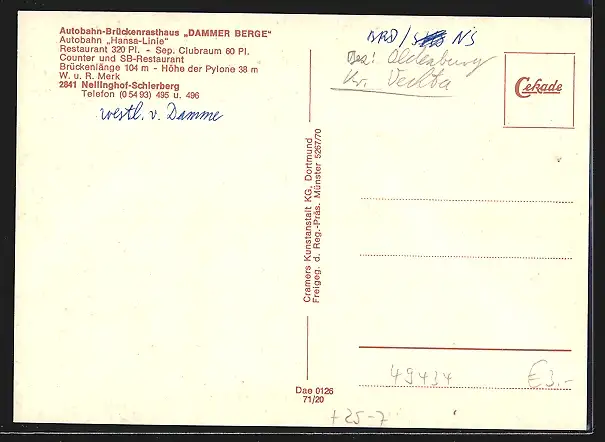 Autobahn-Brückenrasthaus „DAMMER BERGE"
Autobahn „Hansa-Linie"
Restaurant 320 Pl. - Sep. Clubraum 60 Pl.
Counter und SB-Restaurant
Brückenlänge 104 m - Höhe der Pylone 38 m
W. u. R. Merk
2841 Nellinghof-Schierberg
Telefon (0 54 93) 495 u. 496
westl. v. Damme
BRD / NS
Bez: Oldenburg
Kr. Vechta
Cekade
Cramers Kunstanstalt KG, Dortmund
Freigeg. d. Reg.-Präs. Münster 5267/70
Dae 0126
71/20
49434
€ 3.-
+25-7